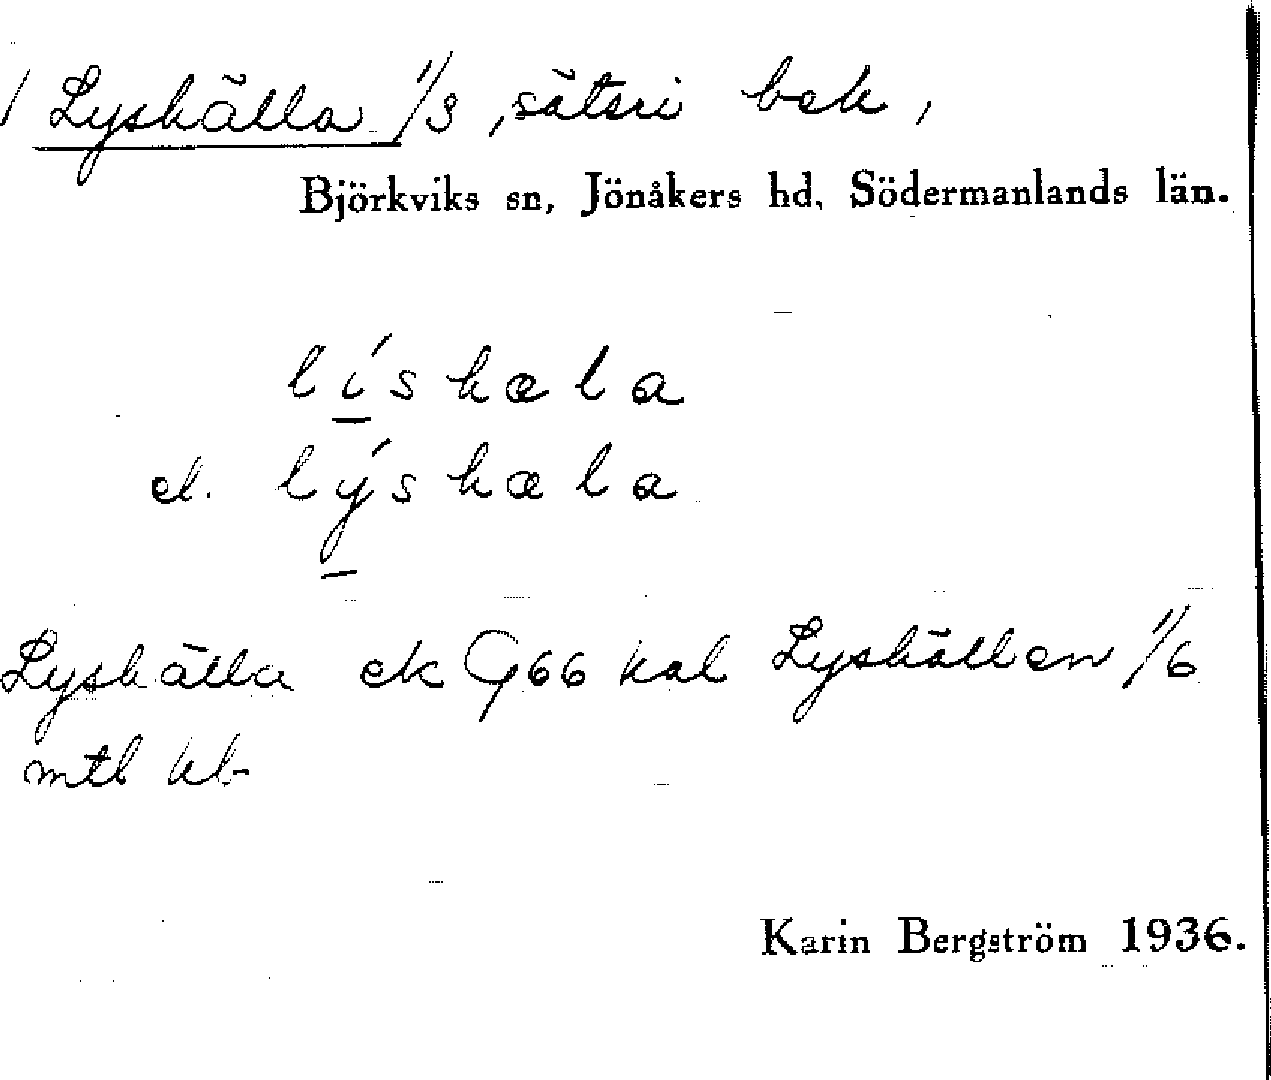 Lyshälla 1/3, säteri bek,
Björkviks sn, Jönåkers hd, Södermanlands län.
líshæla
el. lýshæla
Lyshälla ek G66 kal Lyshällen 1/6
mtl
Karin Bergström 1936.